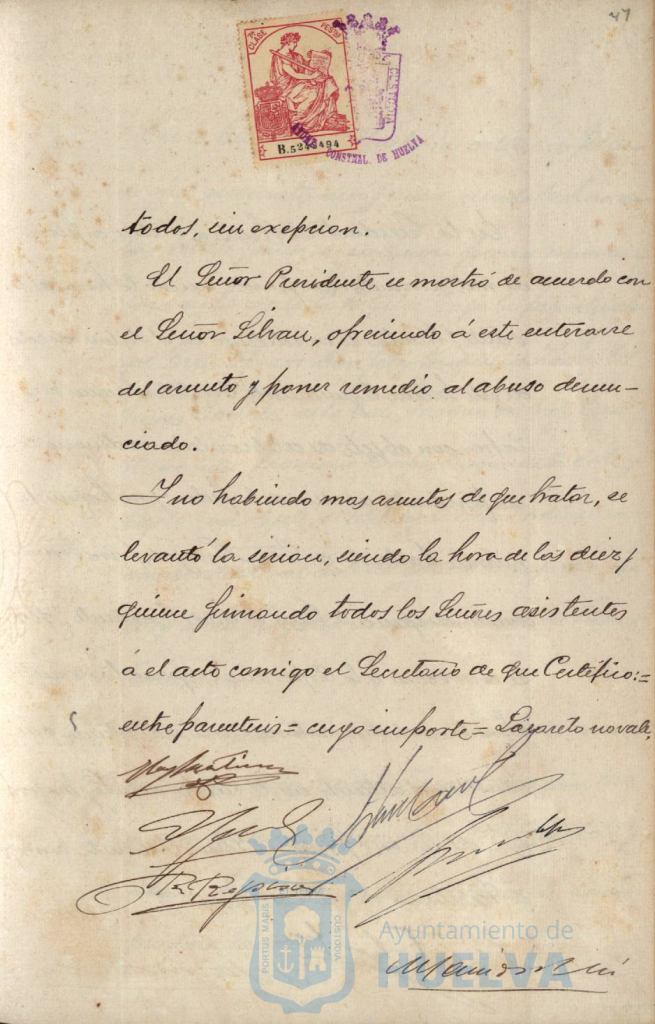 47
CLASE
PESETA
B.5248494
CUSTODIA
AYUNT. CONSTNAL. DE HUELVA
todos, sin exepcion.
El Señor Presidente se mostró de acuerdo con
el Señor Silvan, ofreciendo á este enterarse
del asunto y poner remedio al abuso denun-
ciado.
Y no habiendo mas asuntos de que tratar, se
levantó la sesion, siendo la hora de las diez y
quince firmando todos los Señores asistentes
á el acto comigo el Secretario de que Certifico:=
entre parentesis= cuyo importe= Lazareto no vale.
PORTUS MARIS
CUSTODIA
Ayuntamiento de
HUELVA